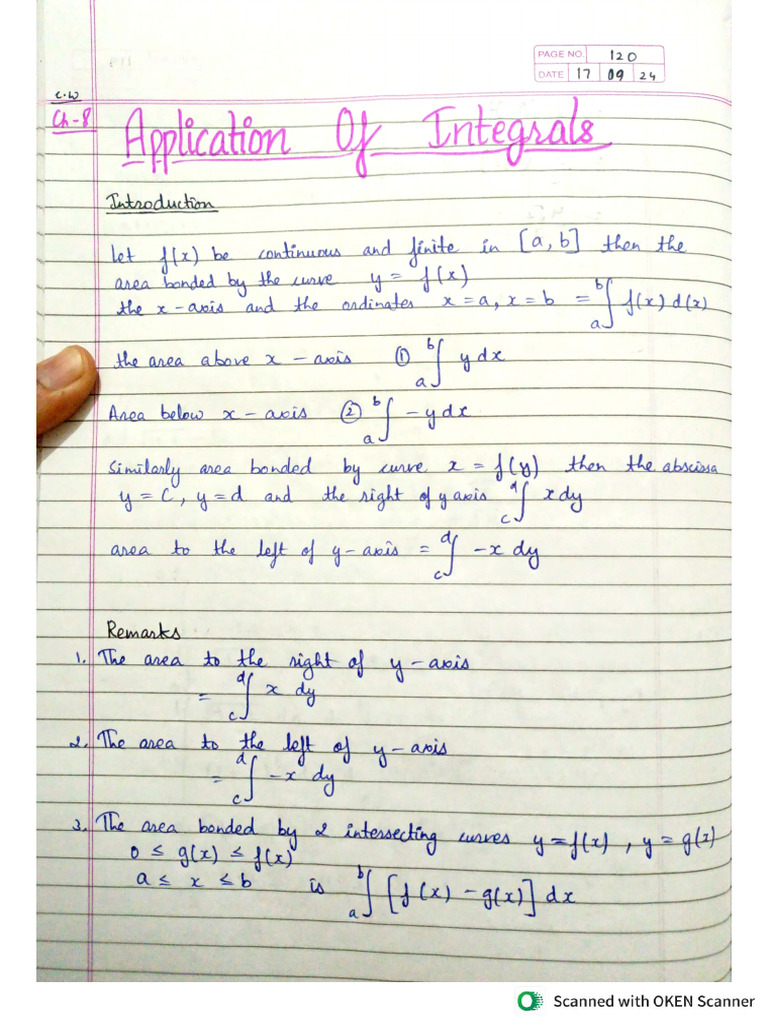 PAGE NO. 120
DATE 17 09 24
C.W
Ch-8
Application Of Integrals
Introduction
Let f(x) be continuous and finite in [a, b] then the
area bonded by the curve y = f(x)
the x-axis and the ordinates x = a, x = b = ∫_a^b f(x) d(x)
the area above x-axis ① ∫_a^b y dx
Area below x-axis ② ∫_a^b -y dx
Similarly area bonded by curve x = f(y) then the abscissa
y = C, y = d and the right of y axis ∫_c^d x dy
area to the left of y-axis = ∫_c^d -x dy
Remarks
1. The area to the right of y-axis
= ∫_c^d x dy
2. The area to the left of y-axis
= ∫_c^d -x dy
3. The area bonded by 2 intersecting curves y = f(x), y = g(x)
0 ≤ g(x) ≤ f(x)
a ≤ x ≤ b is ∫_a^b [f(x) - g(x)] dx
Scanned with OKEN Scanner